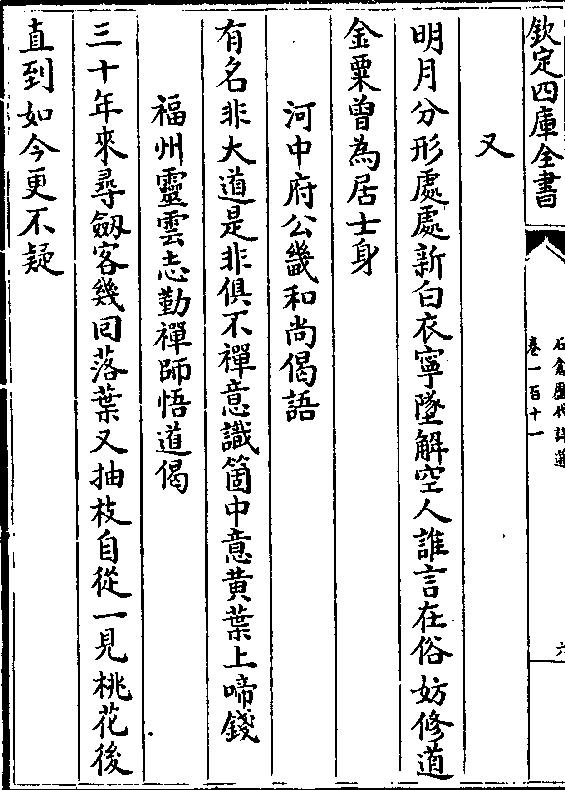 欽定四庫全書
石倉歷代詩選
卷一百十一
六
又
明月分形處處新白衣寧墜解空人誰言在俗妨修道
金粟曾為居士身
河中府公畿和尚偈語
有名非大道是非俱不禪意識箇中意黄葉上啼錢
福州靈雲志勤禪師悟道偈
三十年來尋劔客幾回落葉又抽枝自從一見桃花後
直到如今更不疑